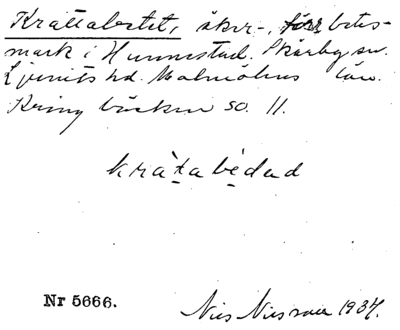 Krättabetet, åker-, förr betes-
mark i Hunnestad. Skårby sn.
Ljunits hd. Malmöhus län.
Kring bäcken SO. 11.
krätabedad
Nr 5666.
Nils Nilsson 1934.